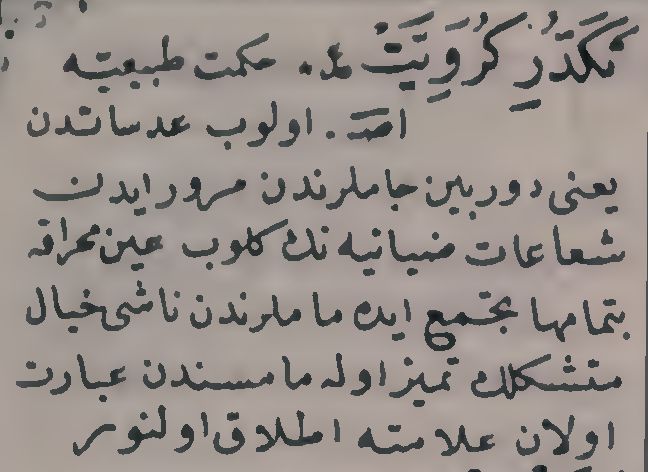 تَكَدُّرِ كُرَوِيَّتْ مذ. حكمت طبيعيه
اصـ. اولوب عدساتدن
يعنى دوربين جاملرندن مرور ايدن
شعاعات ضيائيه نك كلوب عين محراقه
بتمامها مجتمع ايده مامه لرندن ناشى خيال
متشكلك تميز اوله مامسندن عبارت
اولان علامته اطلاق اولنور